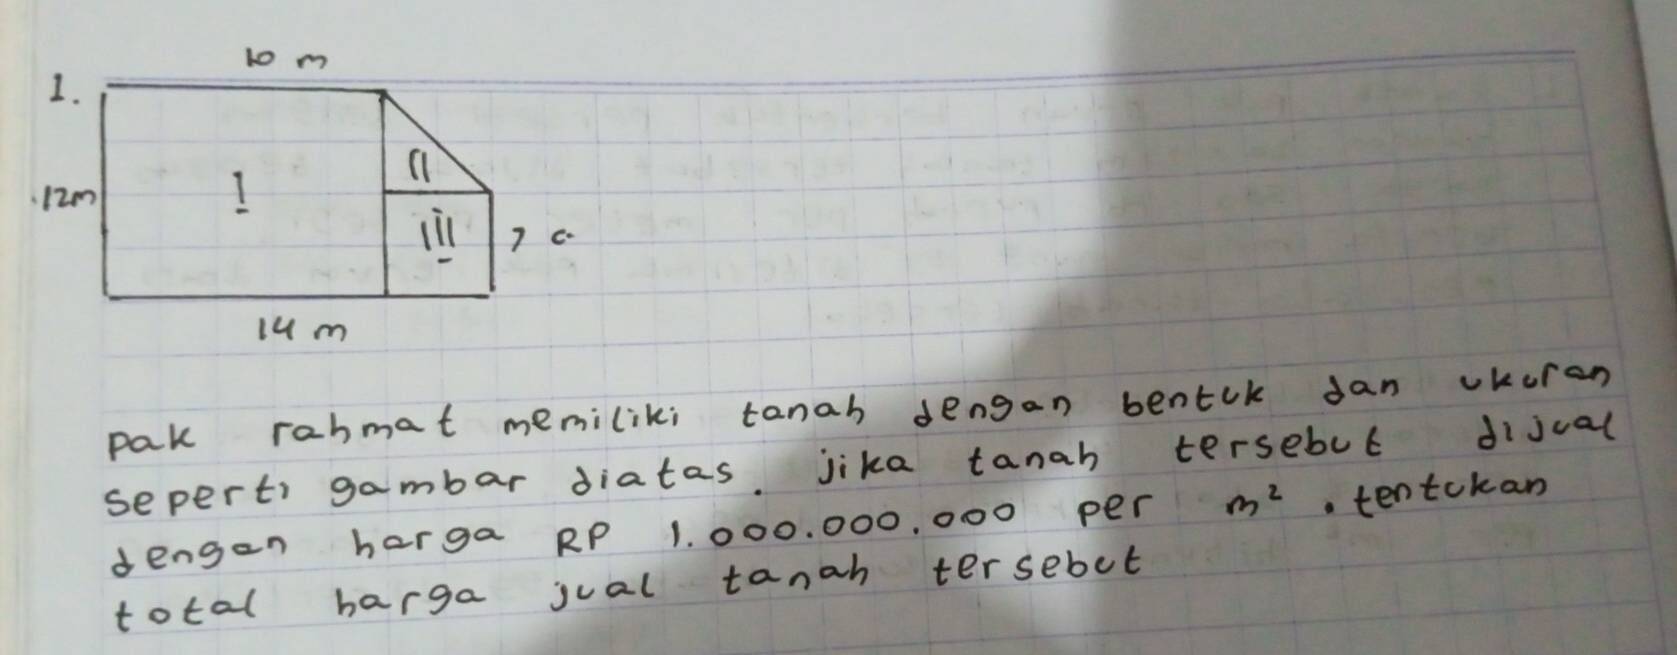 10 m
1.
12m
I
II
III
7 c
14 m
pak rahmat memiliki tanah dengan bentuk dan ukuran
seperti gambar diatas. jika tanah tersebut dijual
dengan harga RP 1.000.000.000 per m². tentukan
total harga jual tanah tersebut